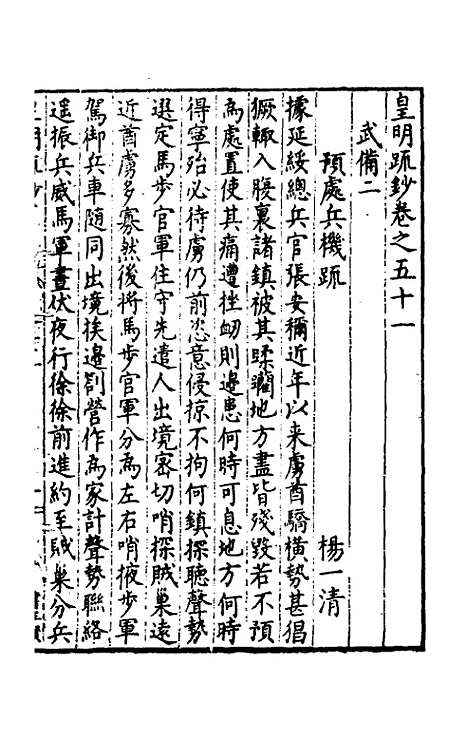 皇明疏鈔卷之五十一
武備二
預處兵機疏　楊一清
據延綏總兵官張安稱近年以來虜酋驕橫勢甚猖
獗輒入腹裏諸鎮被其蹂躪地方盡皆殘毀若不預
為處置使其痛遭挫衂則邊患何時可息地方何時
得寧殆必待虜仍前恣意侵掠不拘何鎮探聽聲勢
選定馬步官軍住守先遣人出境密切哨探賊巢遠
近酋虜多寡然後將馬步官軍分為左右哨掖步軍
駕御兵車隨同出境挨邊劄營作為家計聲勢聯絡
遥振兵威馬軍晝伏夜行徐徐前進約至賊巢分兵